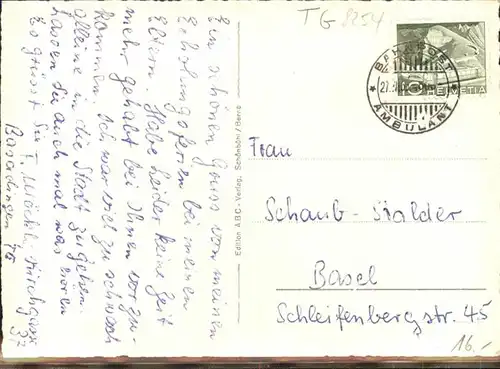 TG 8254
HELVETIA
BAHNPOST
AMBULANT
Ein schönen Gruss von meinen
Erholungsferien bei meinen
Eltern. Habe leider keine Zeit
mehr gehabt bei Ihnen vorzu-
kommen. Ich war noch zu schwach
alleine in die Stadt zu gehen.
Lassen Sie auch mal was hören
Es grüsst Sie
Basadingen TG
Edition A.B.C.-Verlag, Schönbühl/Berne
Frau
Schaub-Halder
Basel
Schleifenbergstr. 45
16.-